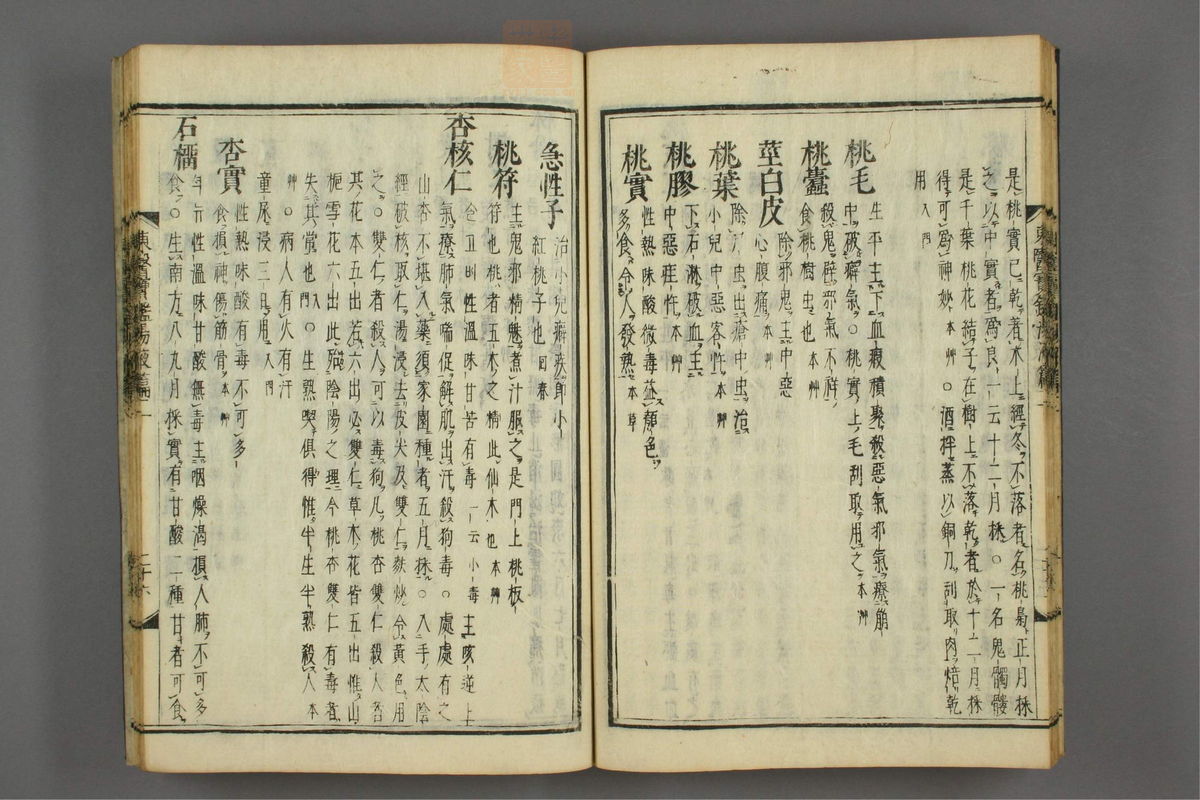 是桃實已乾者木上經冬不落者名桃梟正月採
之以中實者爲良一云十二月採○一名鬼髑髏
是千葉桃花結子在樹上不落乾者於十二月採
得可爲神妙本艸○酒拌蒸以銅刀刮取肉焙乾
用入門
桃毛
性平主下血瘕積聚殺惡氣邪氣療崩
中破癖氣○桃實上毛刮取用之本艸
桃蠹
殺鬼辟邪氣不祥
食桃樹虫也本艸
莖白皮
除邪鬼主中惡
心腹痛本艸
桃葉
除尸虫出瘡中虫治
小兒中惡客忤本艸
桃膠
下石淋破血主
中惡疰忤本艸
桃實
性熱味酸微毒益顔色
多食令人發熱本草
急性子
治小兒癖疾卽小
紅桃子也回春
桃符
主鬼邪精魅煮汁服之是門上桃板
符也桃者五木之精此仙木也本艸
杏核仁
性溫味甘苦有毒一云小毒主咳逆上
氣療肺氣喘促解肌出汗殺狗毒○處處有之
山杏不堪入藥須家園種者五月採○入手太陰
經破核取仁湯浸去皮尖及雙仁麩炒令黃色用
之○雙仁者殺人可以毒狗凡桃杏雙仁殺人者
其花本五出若六出必雙仁草木花皆五出惟山
梔雪花六出此殆陰陽之理今桃杏雙仁有毒者
失其常也入門○生熟喫俱得惟半生半熟殺人本
艸○病人有火有汗
童尿浸三日用入門
杏實
性熱味酸有毒不可多
食損神傷筋骨本艸
石橊
性溫味甘酸無毒主咽燥渴損人肺不可多
食○生南方八九月採實有甘酸二種甘者可食
東醫寶鑑湯液篇